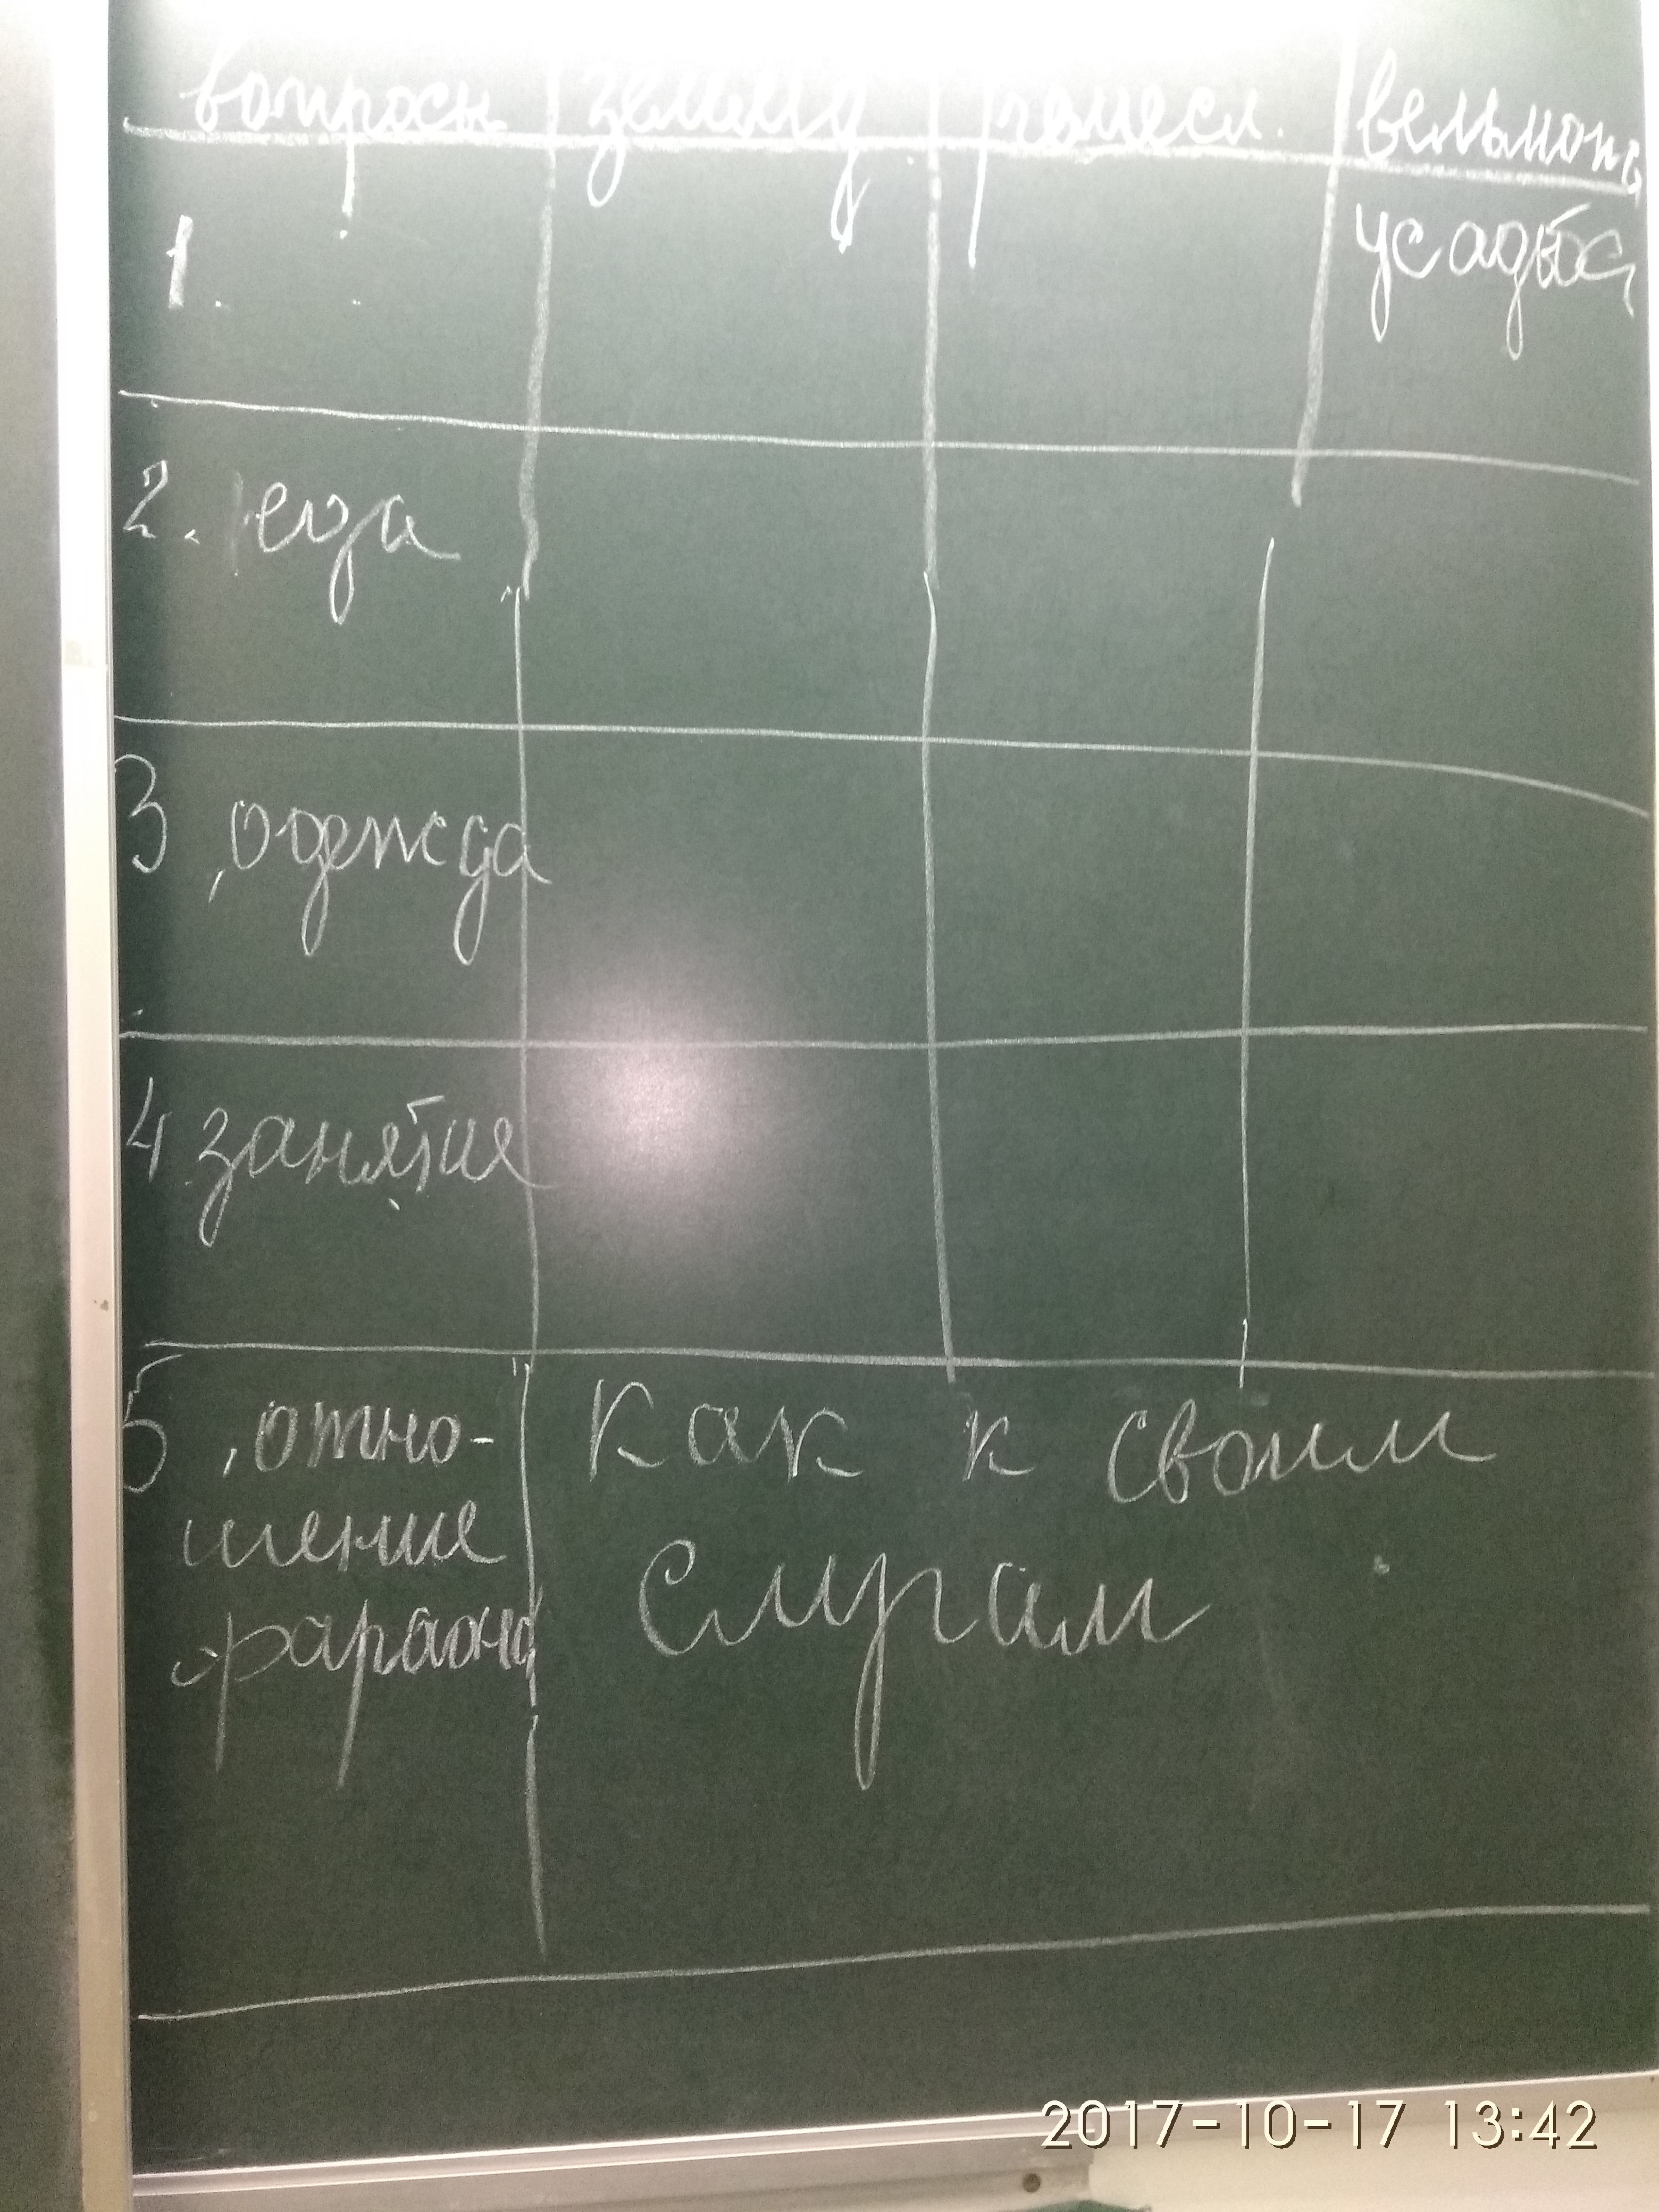 вопросы земмд ремесл. вельможа
1. усадьба
2. еда
3, одежда
4 занятие
5, отно- Как к своим
шение слугам
фараона
2017-10-17 13:42